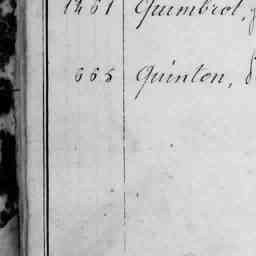 1461 Quimbrot,
665 Quinton,